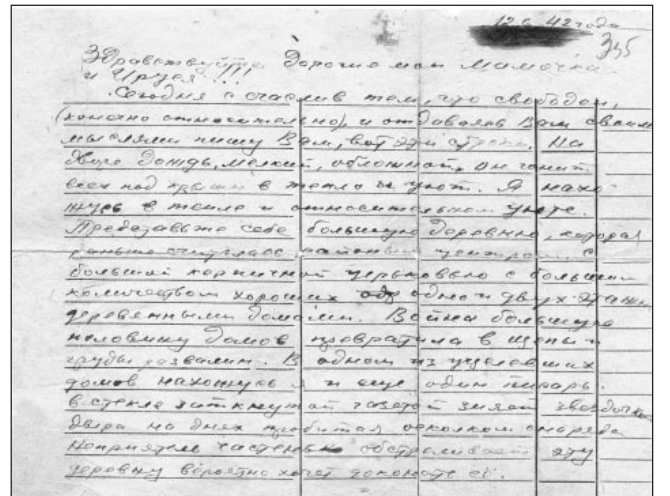 12 6 42 года
345
Здравствуйте Дорогие мои Мамочка
и Ируся!!!
Сегодня я счастлив тем, что свободен,
(конечно относительно), и отдаваясь Вам своими
мыслями пишу Вам, вот эти строки. На
дворе дождь, мелкий, обложной, он гонит
всех под крыши в тепло и уют. Я нахо-
жусь в тепле и относительном уюте.
Представьте себе большую деревню, которая
раньше считалась районным центром, с
большой кирпичной церковью с большим
количеством хороших одно и двух этажн.
деревянными домами. Война большую
половину домов превратила в щепы и
груды развалин. В одном из уцелевших
домов нахожусь я и еще один писарь.
в стекле заткнутая газетой зияет звездочка
дыра на днях пробитая осколком снаряда
Неприятель частенько обстреливает эту
деревню вероятно хочет доконать её.